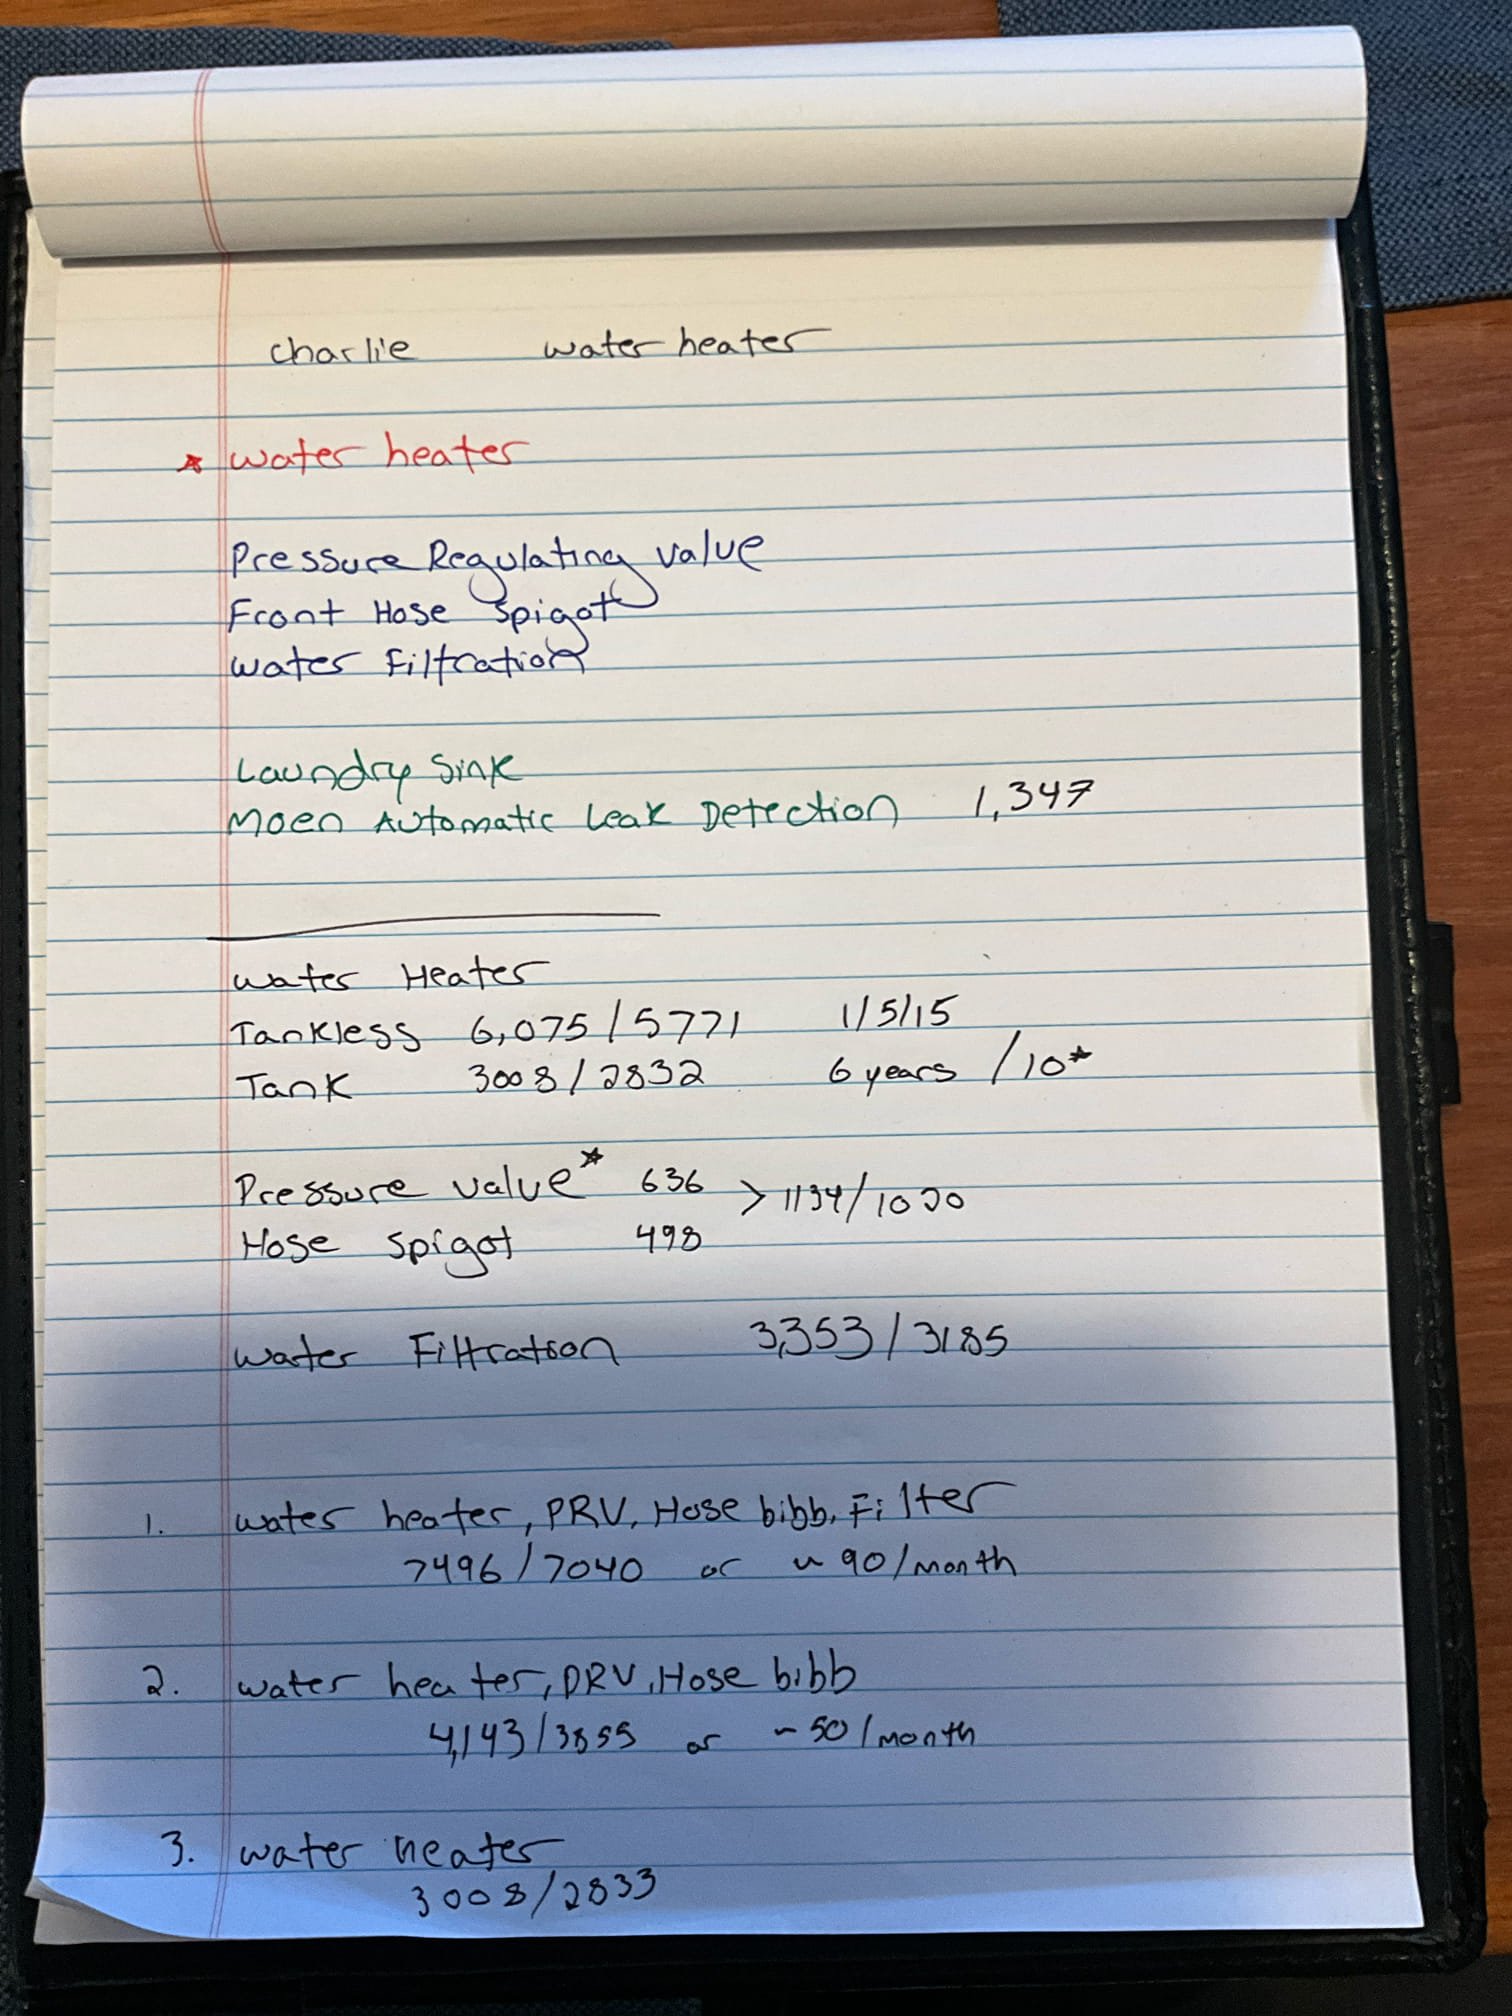 charlie water heater
* water heater
Pressure Regulating value
Front Hose Spigot
water Filtration
Laundry Sink
Moen Automatic Leak Detection 1,347
water Heater
Tankless 6,075 / 5771 1/5/15
Tank 3008 / 2832 6 years / 10*
Pressure value* 636 > 1134/1000
Hose spigot 498
water Filtration 3,353 / 3185
1. water heater, PRV, Hose bibb, Filter
7496 / 7040 or ~ 90/month
2. water heater, PRV, Hose bibb
4,143 / 3855 or ~ 50 / month
3. water heater
3008/2833